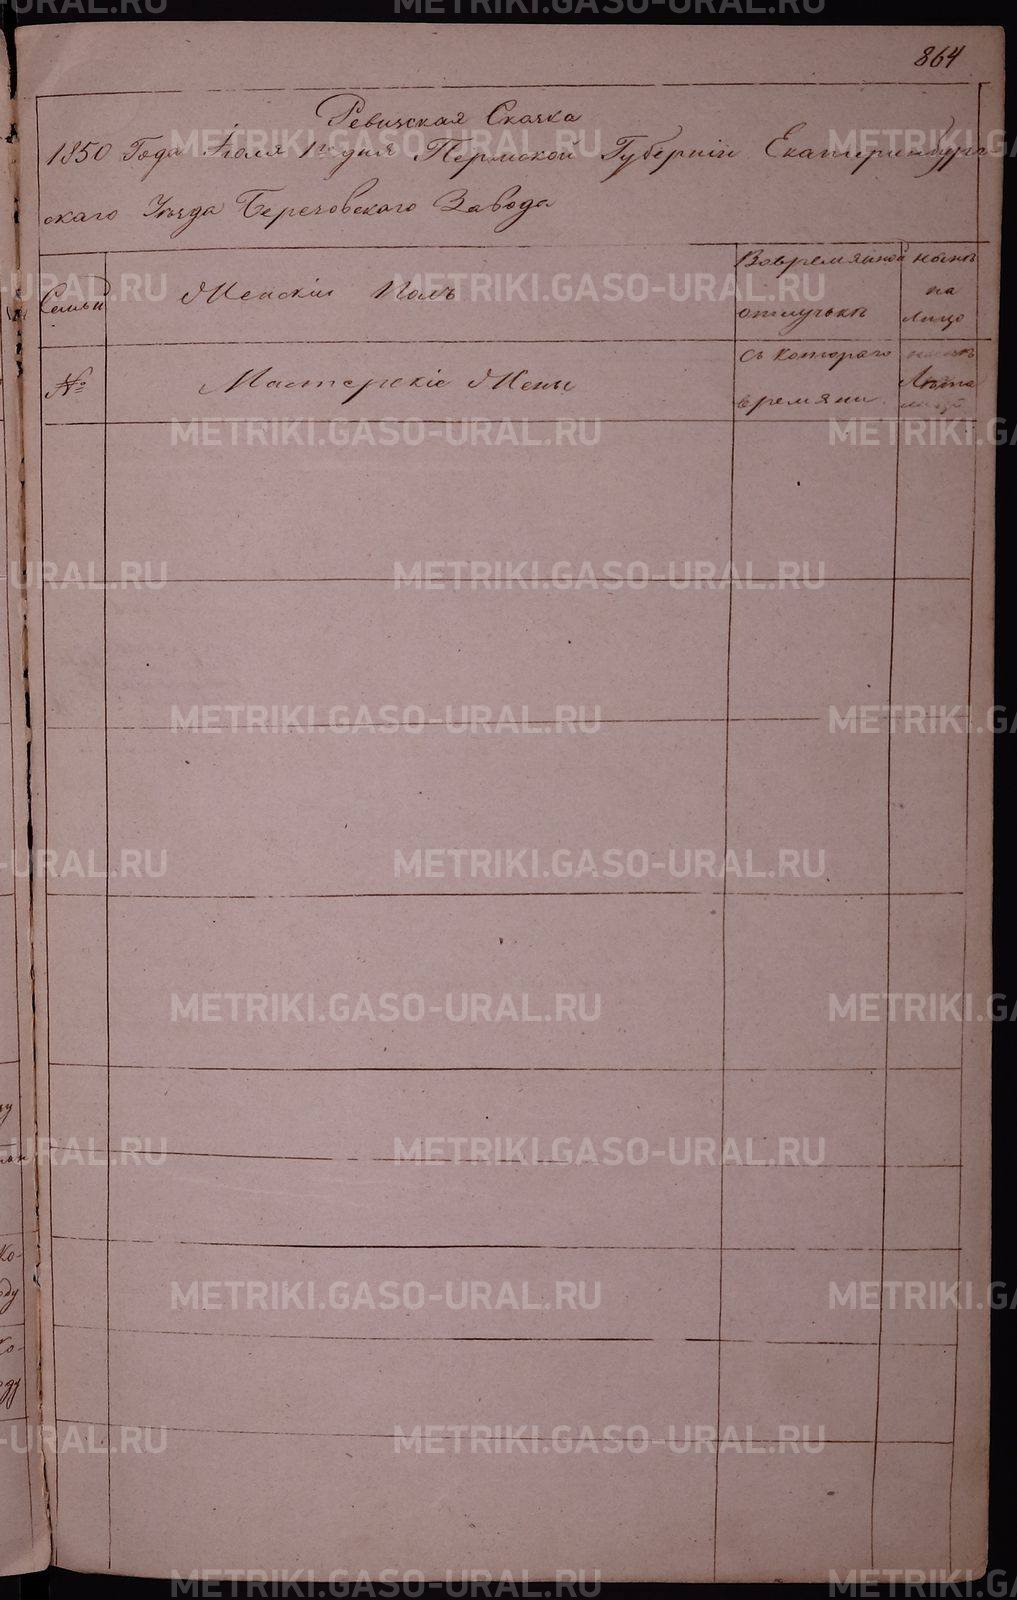 864
Ревизская Сказка
1850 Года Іюля 1го дня Пермской Губерніи Екатеринбург
скаго Уѣзда Березовскаго Завода
Семьи
Женскій Полъ
Вовремянной
отлучкѣ
нынѣ
на
лицо
№
Мастерскіе Жены
съ котораго
времяни
Лѣта
METRIKI.GASO-URAL.RU